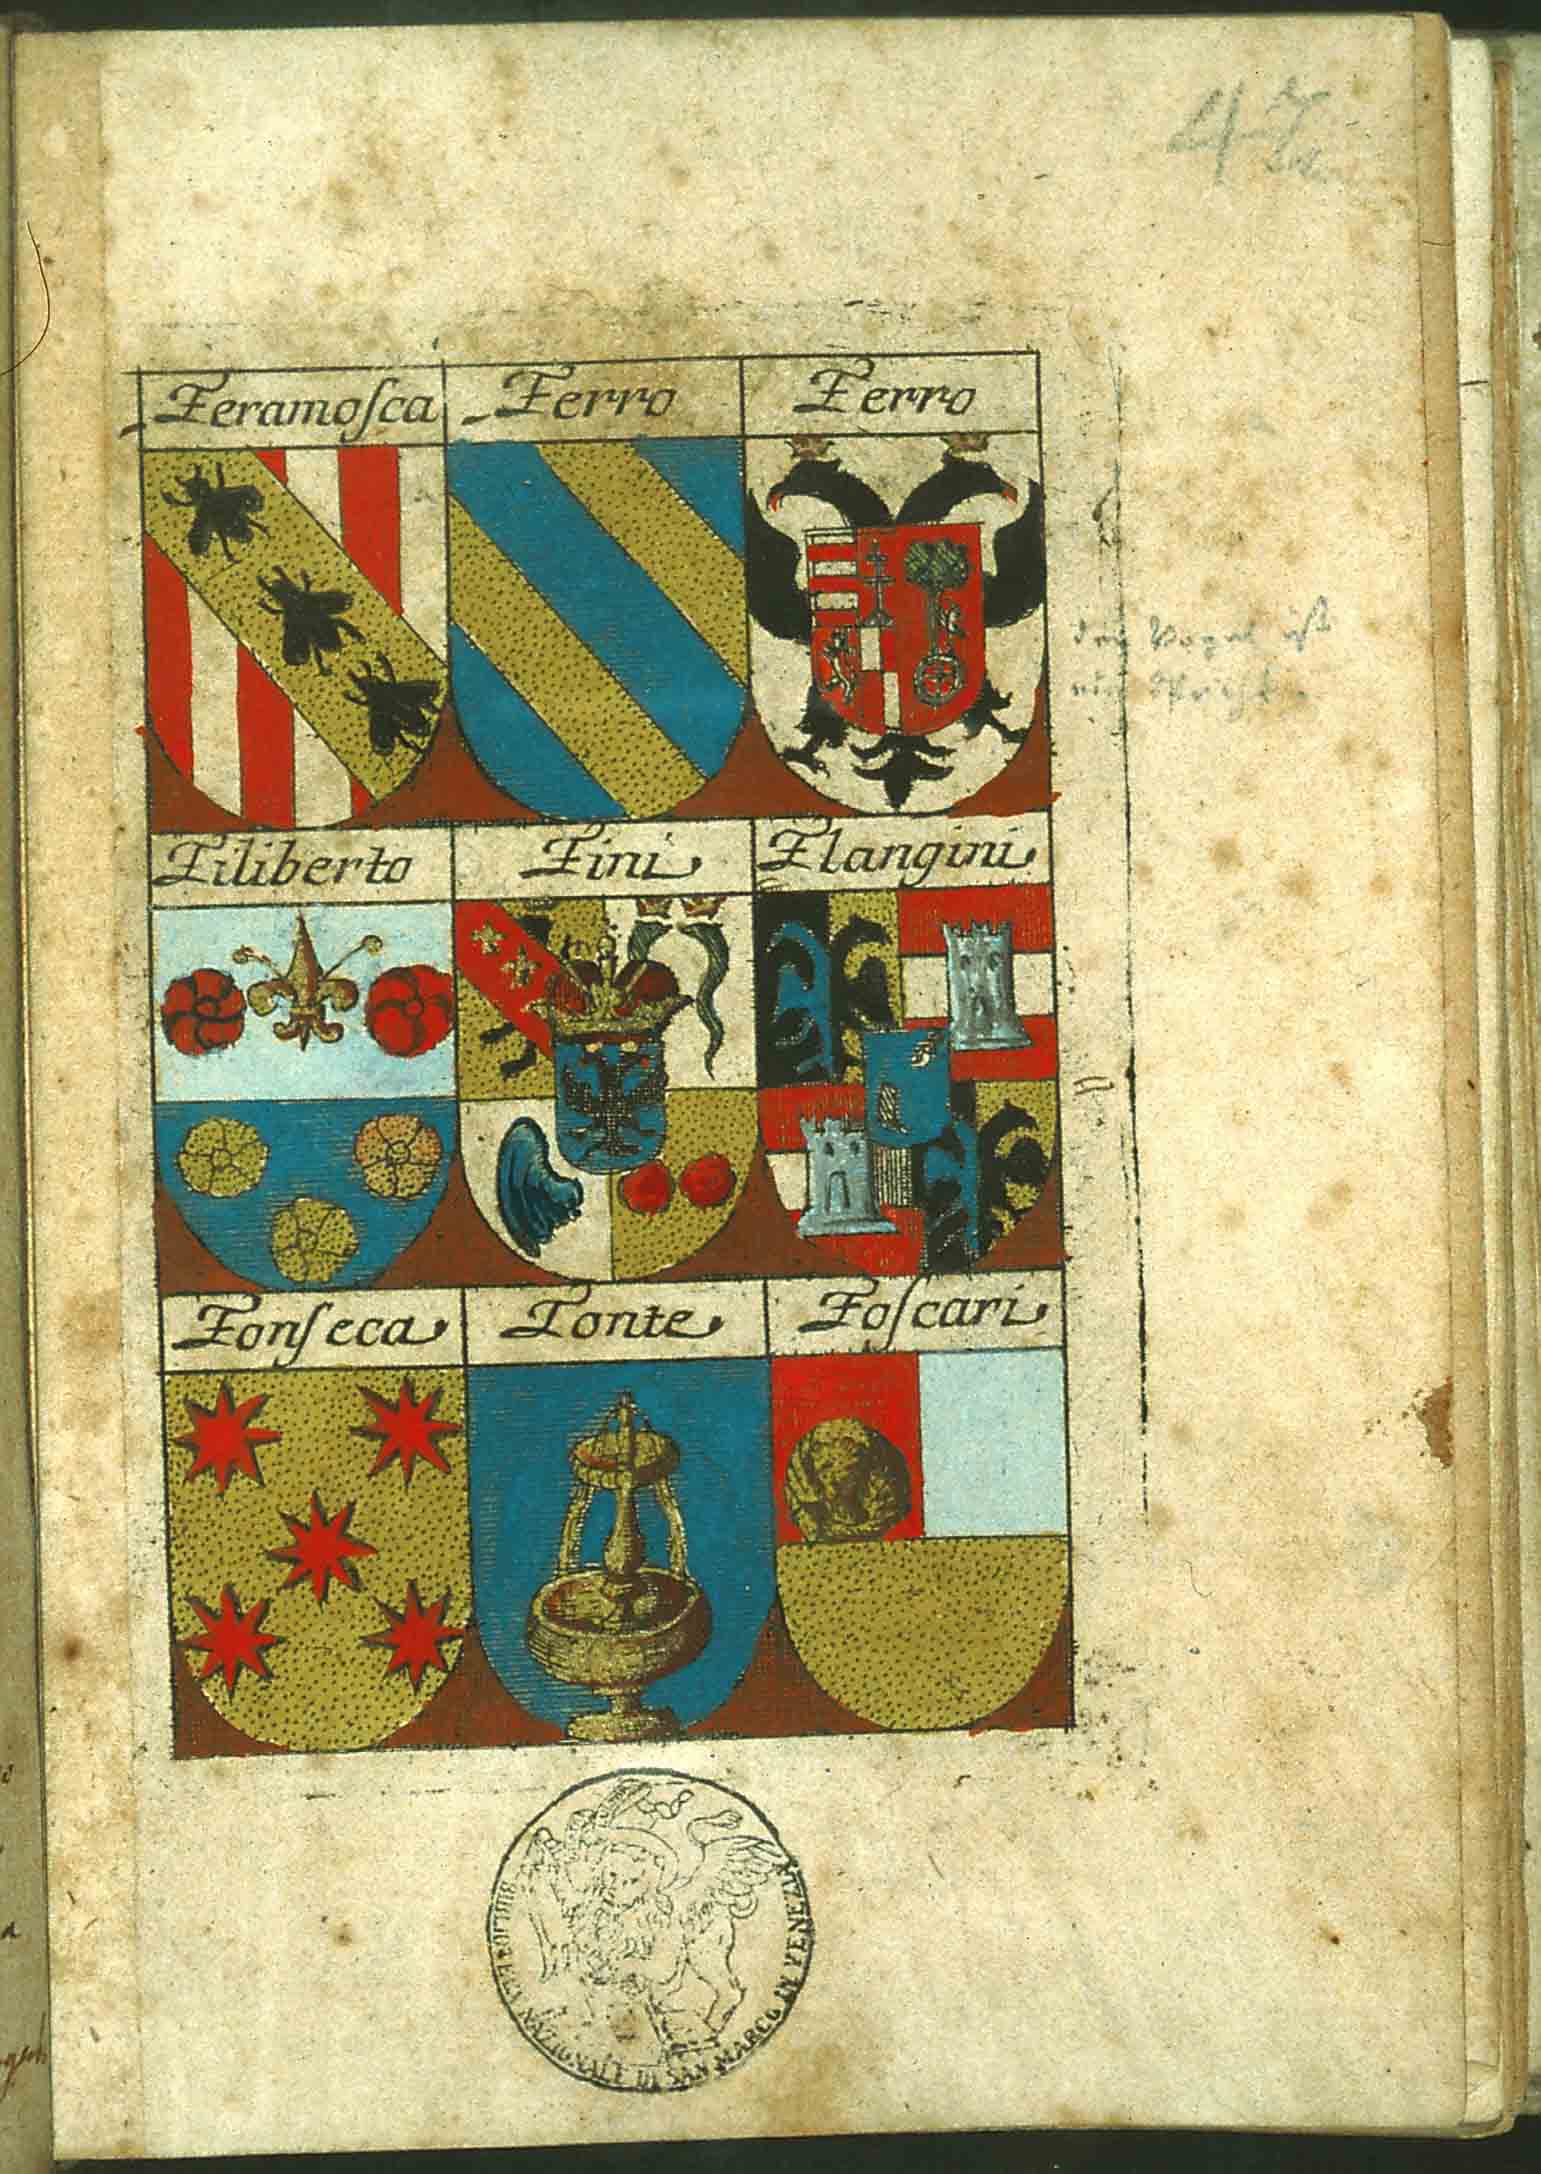 47
Feramoſca
Ferro
Ferro
Filiberto
Fini
Flangini
Fonſeca
Fonte
Foſcari
BIBLIOTECA NAZIONALE DI SAN MARCO IN VENEZIA